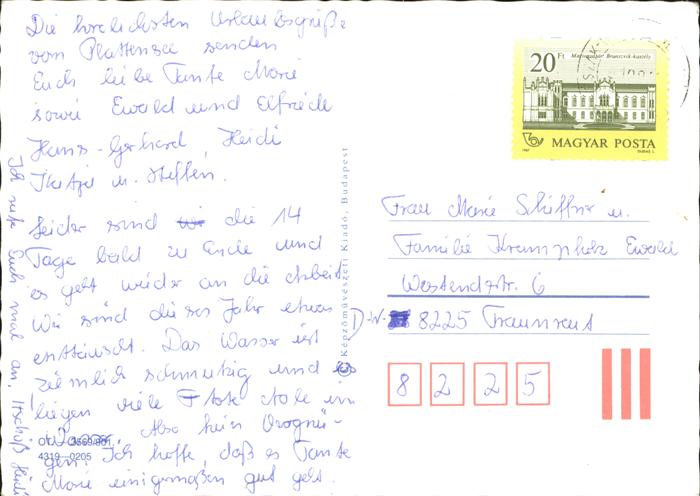 Die herzlichsten Urlaubsgrüße
vom Plattensee senden
Euch liebe Tante Marie
sowie Ewald und Elfriede
Hans-Gerhard, Heidi
Katja u. Steffen.
Leider sind wir die 14
Tage bald zu Ende und
es geht wieder an die Arbeit
Wir sind dieses Jahr etwas
enttäuscht. Das Wasser ist
ziemlich schmutzig und es
liegen viele tote im
Also kein Vergnü-
gen. Ich hoffe, daß es Tante
Marie einigermaßen gut geht.
Ich rufe Euch mal an. Tschüß Heidi
4319 0205
© Képzőművészeti Kiadó, Budapest
20 Ft
Martonvásár Brunszvik-kastély
MAGYAR POSTA
1987
Frau Marie Schiffner u.
Familie Ewald
Westendstr. 6
D-W- 8225 Traunreut
8 2 2 5